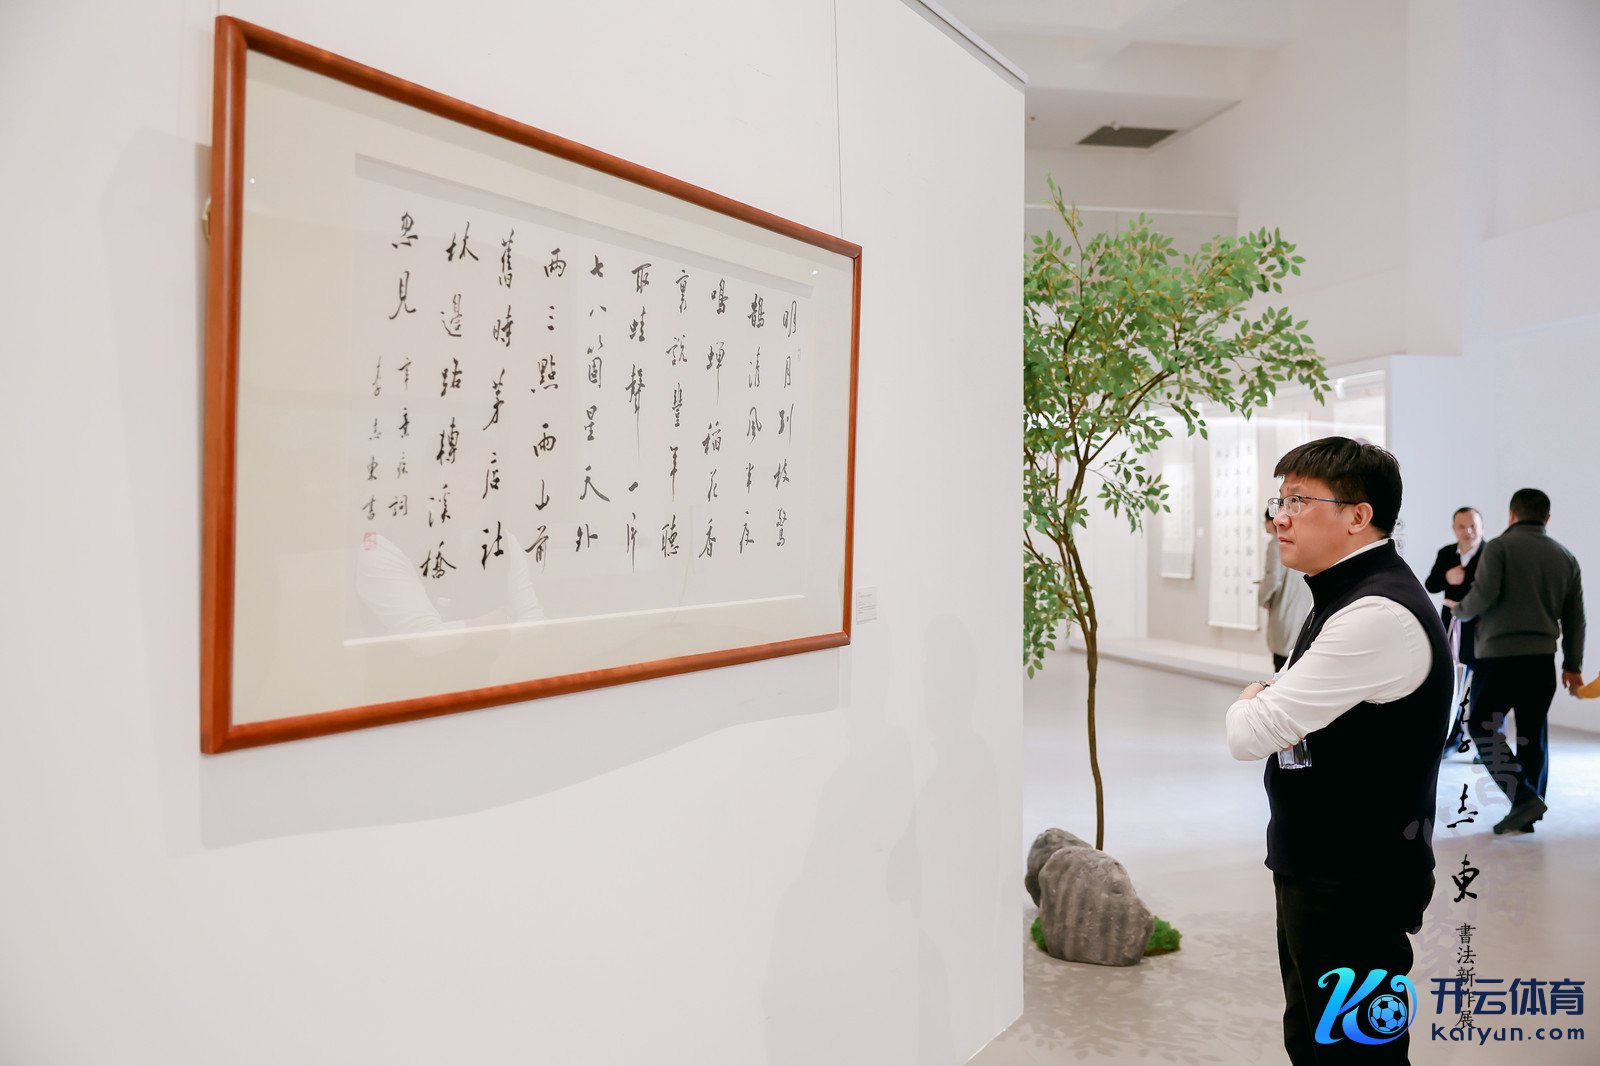 明月別枝驚
鵲清風半夜
鳴蟬稻花香
裏說豐年聽
取蛙聲一片
七八個星天外
兩三點雨山前
舊時茅店社
林邊路轉溪橋
忽見
辛棄疾詞
李志東書
李志東
書法新作展
开云体育
Kaiyun.com